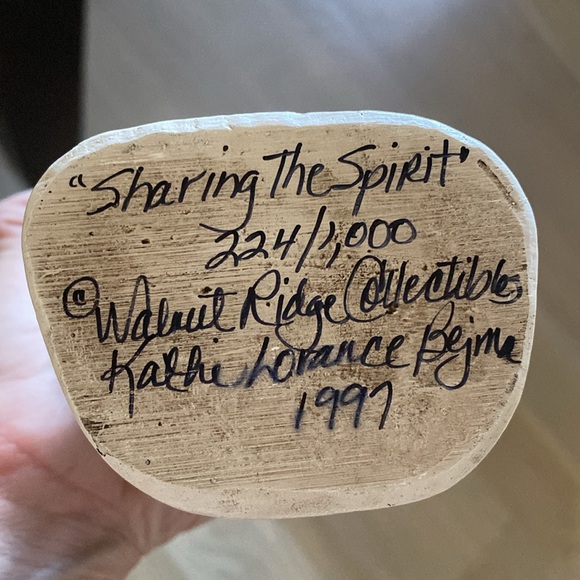 "Sharing The Spirit"
224/1,000
© Walnut Ridge Collectibles
Kathi Lorance Bejma
1997